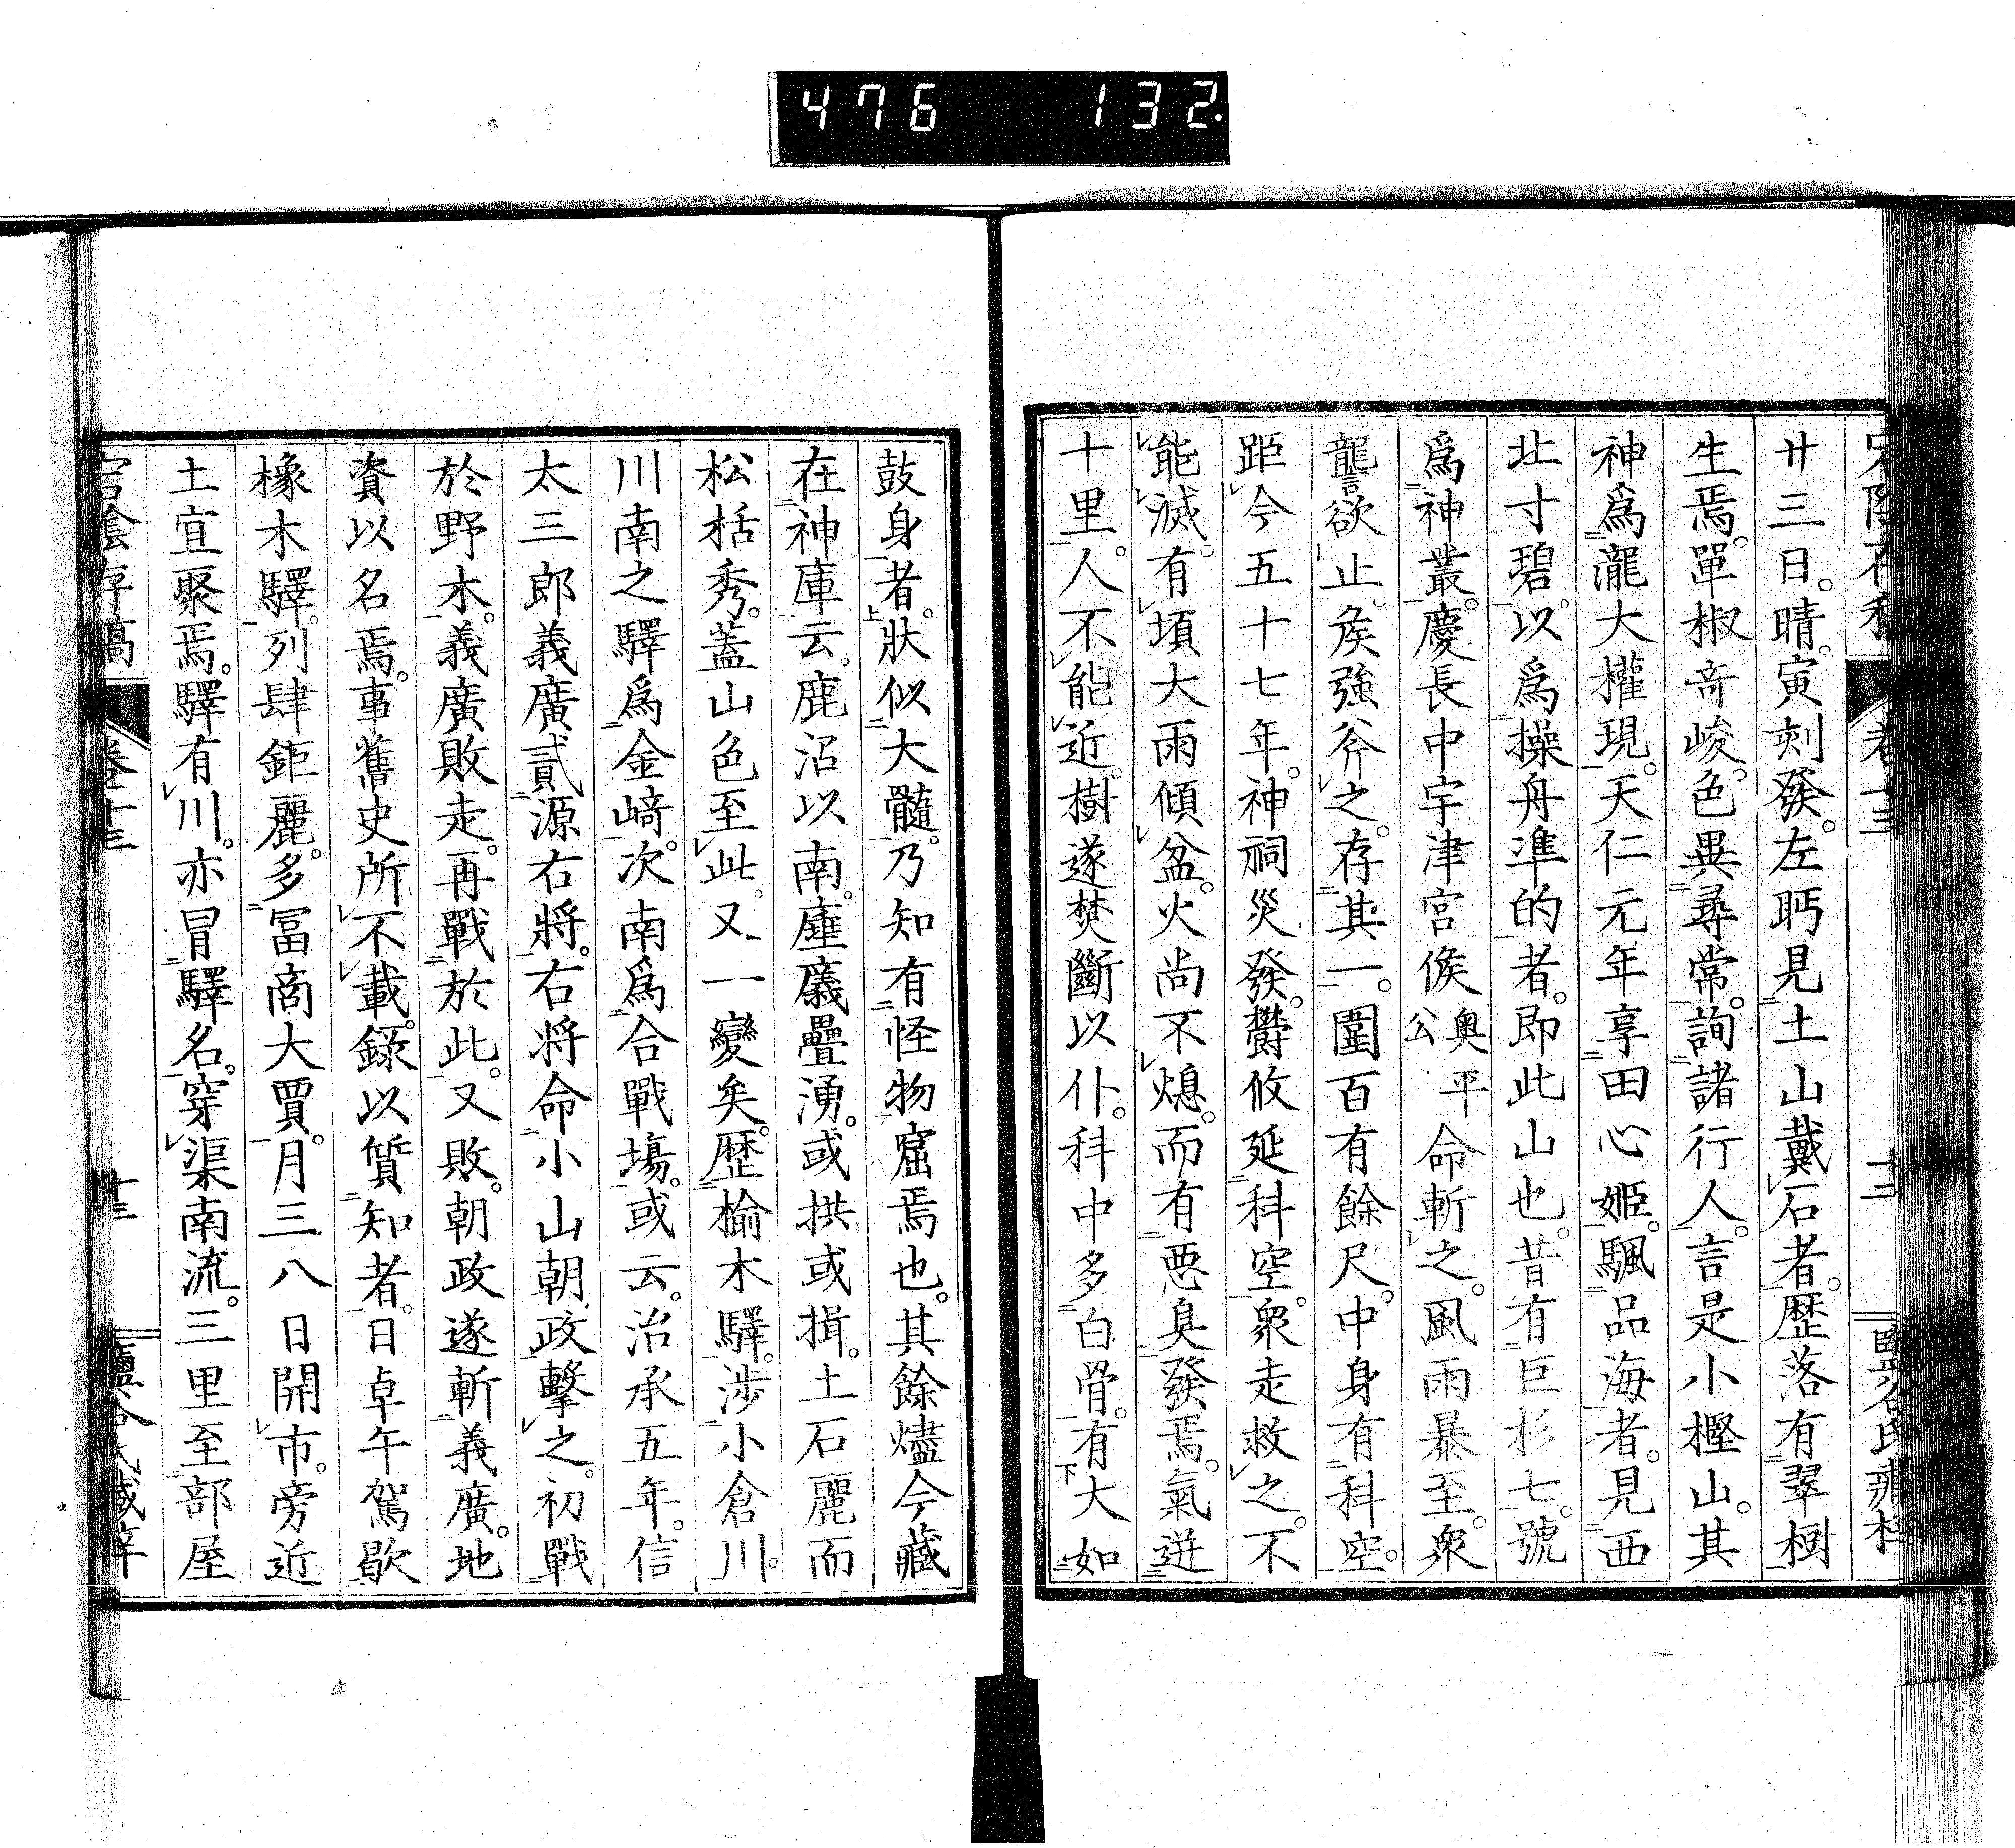 476 132.
卷十三
十二
廿三日。晴。寅刻發。左眄見土山戴石者。歷落有翠樹
生焉。單椒奇峻。色異尋常。詢諸行人。言是小樫山。其
神爲瀧大權現。天仁元年享田心姬。颿品海者。見西
北寸碧。以爲操舟準的者。即此山也。昔有巨杉七。號
爲神叢。慶長中宇津宮侯奧平公命斬之。風雨暴至。衆
讋欲止。矦強斧之。存其一。圍百有餘尺。中身有科空。
距今五十七年。神祠災發。欝攸延科空。衆走救之。不
能滅。有頃大雨傾盆。火尚不熄。而有惡臭發焉。氣迸
十里。人不能近。樹遂焚斷以仆。科中多白骨。有大如
鼓身者。狀似大髓。乃知有怪物窟焉也。其餘燼今藏
在神庫云。鹿沼以南。㕓㕒疊湧。或拱或揖。土石麗而
松栝秀。蓋山色至此。又一變矣。歷榆木驛。涉小倉川。
川南之驛爲金崎。次南爲合戰場。或云。治承五年。信
太三郎義廣貳源右將。右将命小山朝政擊之。初戰
於野木。義廣敗走。再戰於此。又敗。朝政遂斬義廣。地
資以名焉。事舊史所不載。錄以質知者。日卓午駕歇
橡木驛。列肆鉅麗。多冨商大賈。月三八日開市。旁近
土宜聚焉。驛有川。亦冒驛名。穿渠南流。三里至部屋
宕陰存稿
卷十三
十三
鹽谷氏藏梓